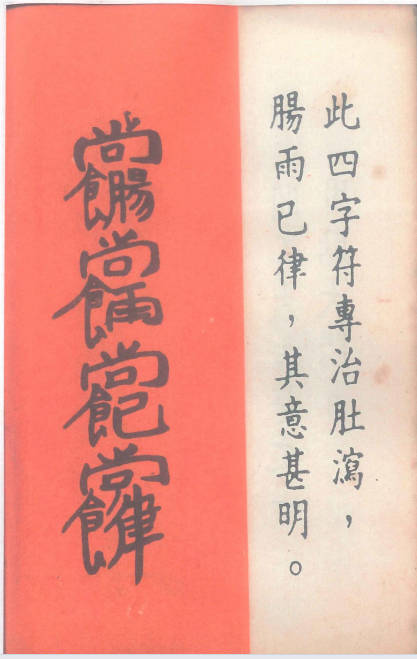 此四字符專治肚瀉，
腸雨已律，其意甚明。